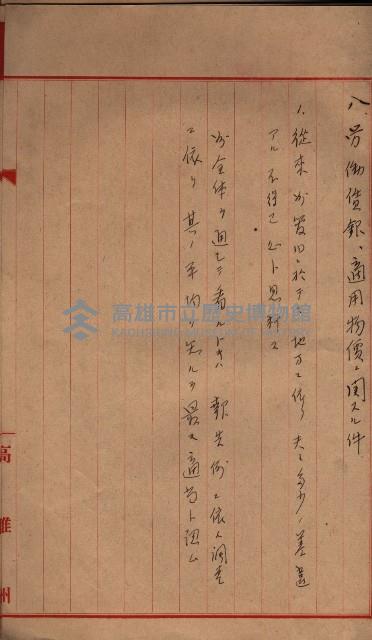 八、労働賃銀、適用物價ニ関スル件
1、従來州管内ニ於テ地方ニ依リ夫々多少ノ差違
アルハ不得已コトト思料ス
州全体ヲ通シテ看ルトキハ報告例ニ依ル調査
ニ依リ其ノ平均ヲ知ルヲ最モ適当ト認ム
高雄市立歷史博物館
KAOHSIUNG MUSEUM OF HISTORY
高雄州